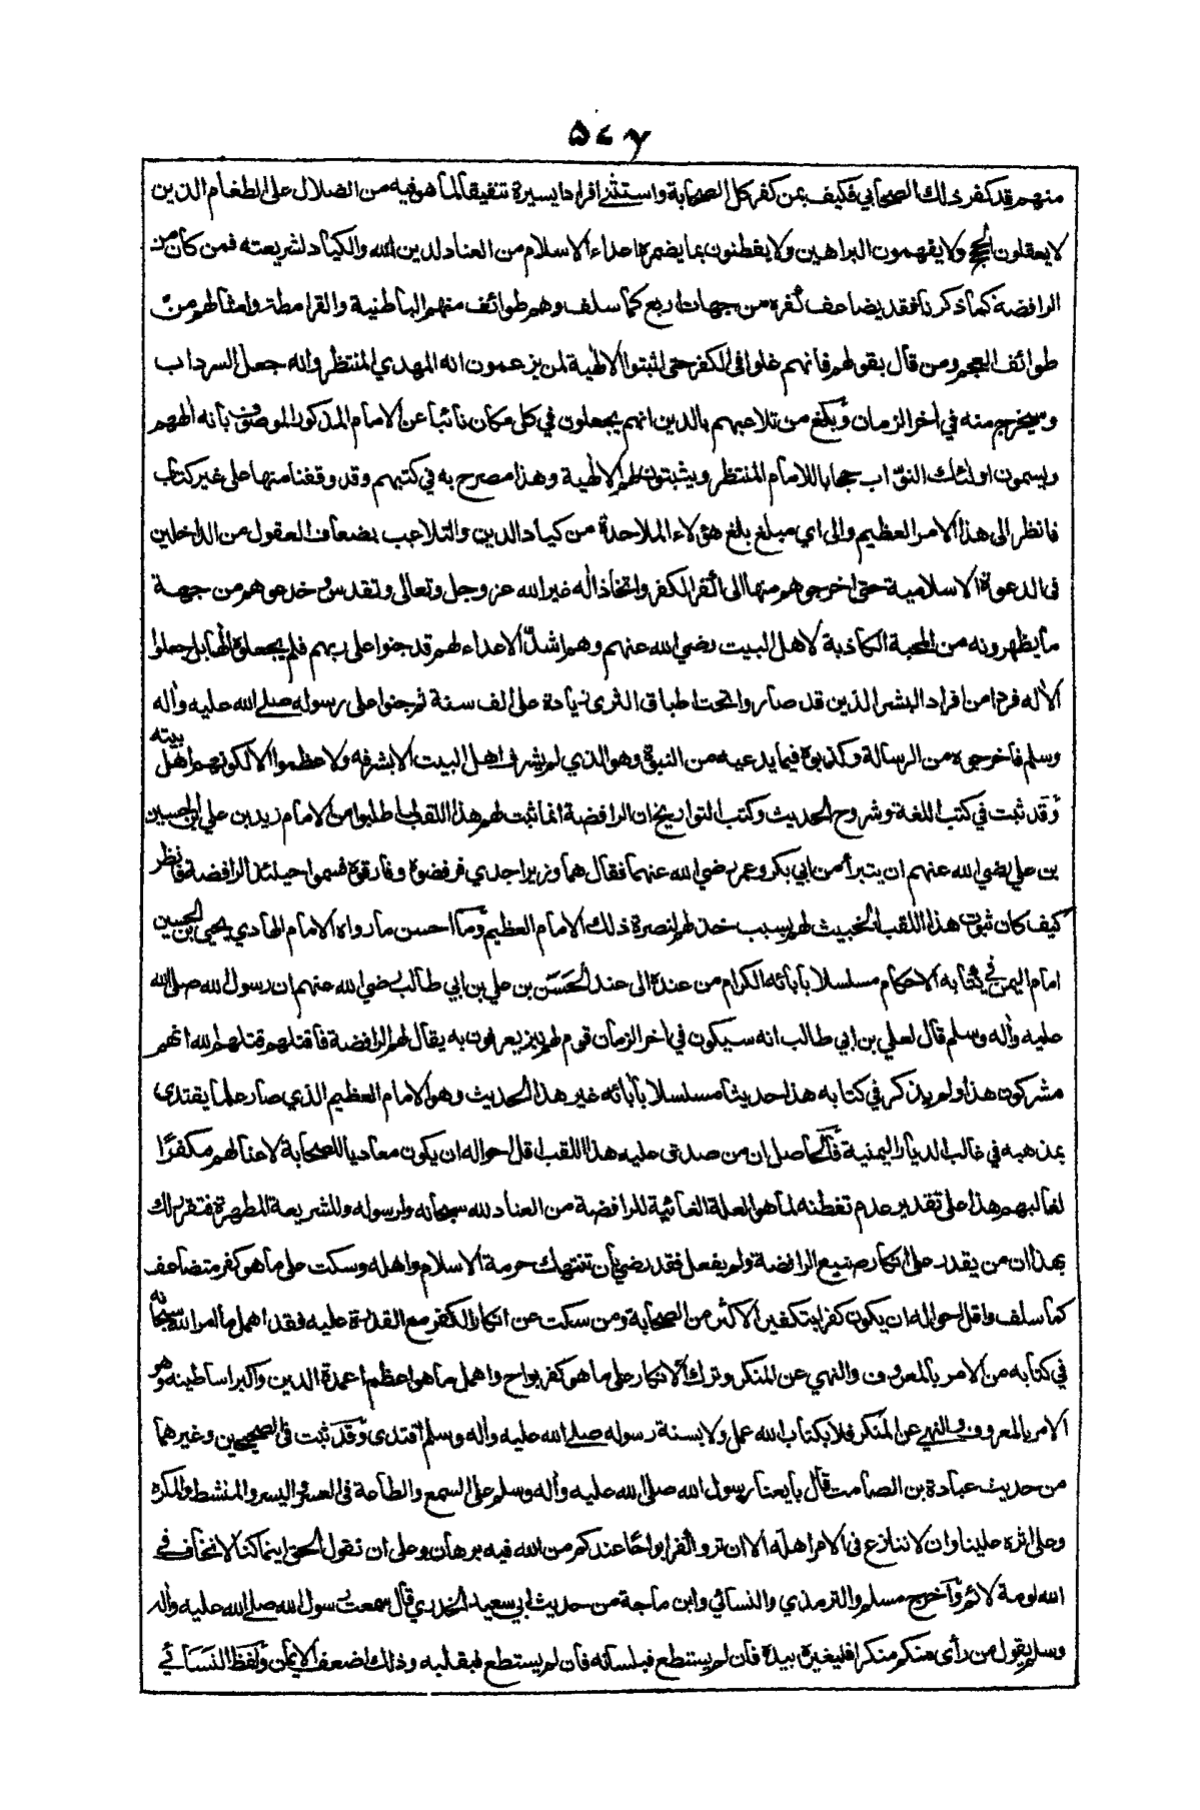 ٥٤٧
منهم قد كفر ذلك الصحابي فكيف بمن كفر كل الصحابة واستثنى افرادا يسيرة تنفيقا لما هو فيه من الضلال على الطغام الذين
لا يعقلون الحجج ولا يفهمون البراهين ولا يفطنون بما يضمره اعداء الاسلام من العناد لدين الله والكياد لشريعته فمن كان من
الرافضة كما ذكرنا فقد يضاعف كفره من جهات اربع كما سلف وهم طوائف منهم الباطنية والقرامطة وامثالهم من
طوائف العجم ومن قال بقولهم فانهم غلوا في الكفر حتى اثبتوا الالهية لمن يزعمون انه المهدي المنتظر وانه جعل السرداب
وسيخرج منه في اخر الزمان وبلغ من تلاعبهم بالدين انهم يجعلون في كل مكان نائبا عن الامام المذكور الموصوف بانه الههم
ويسمون اولئك النواب حجابا للامام المنتظر ويثبتون لهم الالهية وهذا مصرح به في كتبهم وقد وقفنا منها على غير كتاب
فانظر الى هذا الامر العظيم والى اي مبلغ بلغ هؤلاء الملاحدة من كياد الدين والتلاعب بضعاف العقول من الداخلين
في الدعوة الاسلامية حتى اخرجوهم منها الى اكفر الكفر واتخاذ اله غير الله عز وجل وتعالى وتقدس وخدعوهم من جهة
ما يظهرونه من المحبة الكاذبة لاهل البيت رضي الله عنهم وهم اشد الاعداء لهم قد جنوا على ربهم فلم يجعلوه الها بل جعلوا
الاله فردا من افراد البشر الذين قد صاروا تحت اطباق الثرى زيادة على الف سنة ثم جنوا على رسوله صلى الله عليه واله
وسلم فاخرجوه من الرسالة وكذبوه فيما يدعيه من النبوة وهو الذي لم يشرف اهل البيت الا بشرفه ولا عظموا الا لكونهم اهل بيته
وقد ثبت في كتب اللغة وشروح الحديث وكتب التواريخ ان الرافضة انما ثبت لهم هذا اللقب لما طلبوا من الامام زيد بن علي بن الحسين
بن علي رضي الله عنهم ان يتبرأ من ابي بكر وعمر رضي الله عنهما فقال هما وزيرا جدي فرفضوه وفارقوه فسموا حينئذ الرافضة فانظر
كيف كان ثبوت هذا اللقب الخبيث لهم بسبب خذلهم لنصرة ذلك الامام العظيم وما احسن ما رواه الامام الهادي يحيى بن الحسين
امام اليمن في كتابه الاحكام مسلسلا بابائه الكرام من عنده الى عند الحسن بن علي بن ابي طالب رضي الله عنهم ان رسول الله صلى الله
عليه واله وسلم قال لعلي بن ابي طالب انه سيكون في اخر الزمان قوم لهم نبز يعرفون به يقال لهم الرافضة فاقتلهم قتلهم الله انهم
مشركون هذا ولم يذكر في كتابه هذا حديثا مسلسلا بابائه غير هذا الحديث وهو الامام العظيم الذي صار علما يقتدى
بمذهبه في غالب الديار اليمنية فالحاصل ان من صدق عليه هذا اللقب اقل احواله ان يكون معاديا للصحابة لاعنا لهم مكفرا
لغالبهم هذا على تقدير عدم تفطنه لما هو العلة الغائية للرافضة من العناد لله سبحانه ولرسوله وللشريعة المطهرة فتقرر لك
بهذا ان من يقدر على انكار صنيع الرافضة ولم يفعل فقد رضي بان تنتهك حرمة الاسلام واهله وسكت على ما هو كفر متضاعف
كما سلف واقل احواله ان يكون كفرا بتكفير الاكثر من الصحابة ومن سكت عن انكار الكفر مع القدرة عليه فقد اهمل ما امر الله سبحانه
في كتابه من الامر بالمعروف والنهي عن المنكر وترك الانكار على ما هو كفر بواح واهمل ما هو اعظم اعمدة الدين واكبر اساطينه وهو
الامر بالمعروف والنهي عن المنكر فلا بكتاب الله عمل ولا بسنة رسوله صلى الله عليه واله وسلم اقتدى وقد ثبت في الصحيحين وغيرهما
من حديث عبادة بن الصامت قال بايعنا رسول الله صلى الله عليه واله وسلم على السمع والطاعة في العسر واليسر والمنشط والمكره
وعلى اثرة علينا وان لا ننازع في الامر اهله الا ان تروا كفرا بواحا عندكم من الله فيه برهان وعلى ان نقول الحق اينما كنا لا نخاف في
الله لومة لائم واخرج مسلم والترمذي والنسائي وابن ماجة من حديث ابي سعيد الخدري قال سمعت رسول الله صلى الله عليه واله
وسلم يقول من رأى منكم منكرا فليغيره بيده فان لم يستطع فبلسانه فان لم يستطع فبقلبه وذلك اضعف الايمان ولفظ النسائي